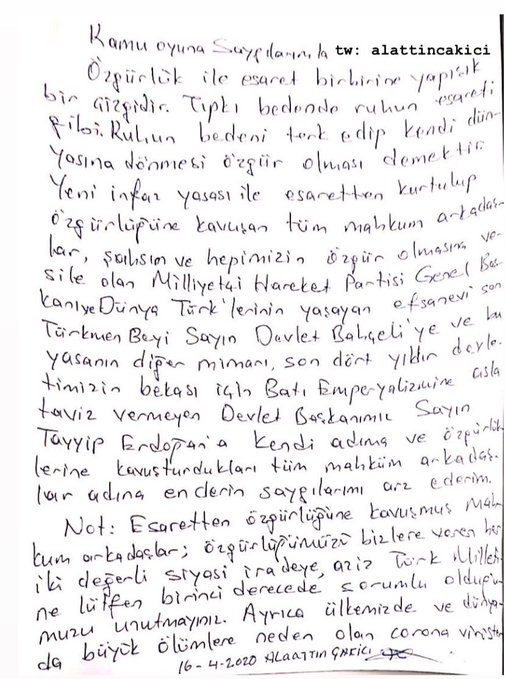 Kamu oyuna Saygılarımla tw: alattincakici
Özgürlük ile esaret birbirine yapışık
bir çizgidir. Tıpkı bedende ruhun esareti
gibi. Ruhun bedeni terk edip kendi dün-
yasına dönmesi özgür olması demektir.
Yeni infaz yasası ile esaretten kurtulup
özgürlüğüne kavuşan tüm mahkum arkadaş-
lar, şahsım ve hepimizin özgür olmasına ve-
sile olan Milliyetçi Hareket Partisi Genel Baş-
kanı ve Dünya Türk'lerinin yaşayan efsanevi son
Türkmen Beyi Sayın Devlet Bahçeli'ye ve bu
yasanın diğer mimarı, son dört yıldır devle-
timizin bekası için Batı Emperyalizmine asla
taviz vermeyen Devlet Başkanımız Sayın
Tayyip Erdoğan'a kendi adıma ve özgürlük-
lerine kavuşturdukları tüm mahküm arkadaş-
lar adına enderin saygılarımı arz ederim.
Not: Esaretten özgürlüğüne kavuşmuş mah-
kum arkadaşlar; özgürlüğümüzü bizlere veren her
iki değerli siyasi iradeye, aziz Türk Milleti-
ne lütfen birinci derecede sorumlu olduğu-
muzu unutmayınız. Ayrıca ülkemizde ve dünya-
da büyük ölümlere neden olan corona
16-4-2020 ALAATTİN ÇAKICI